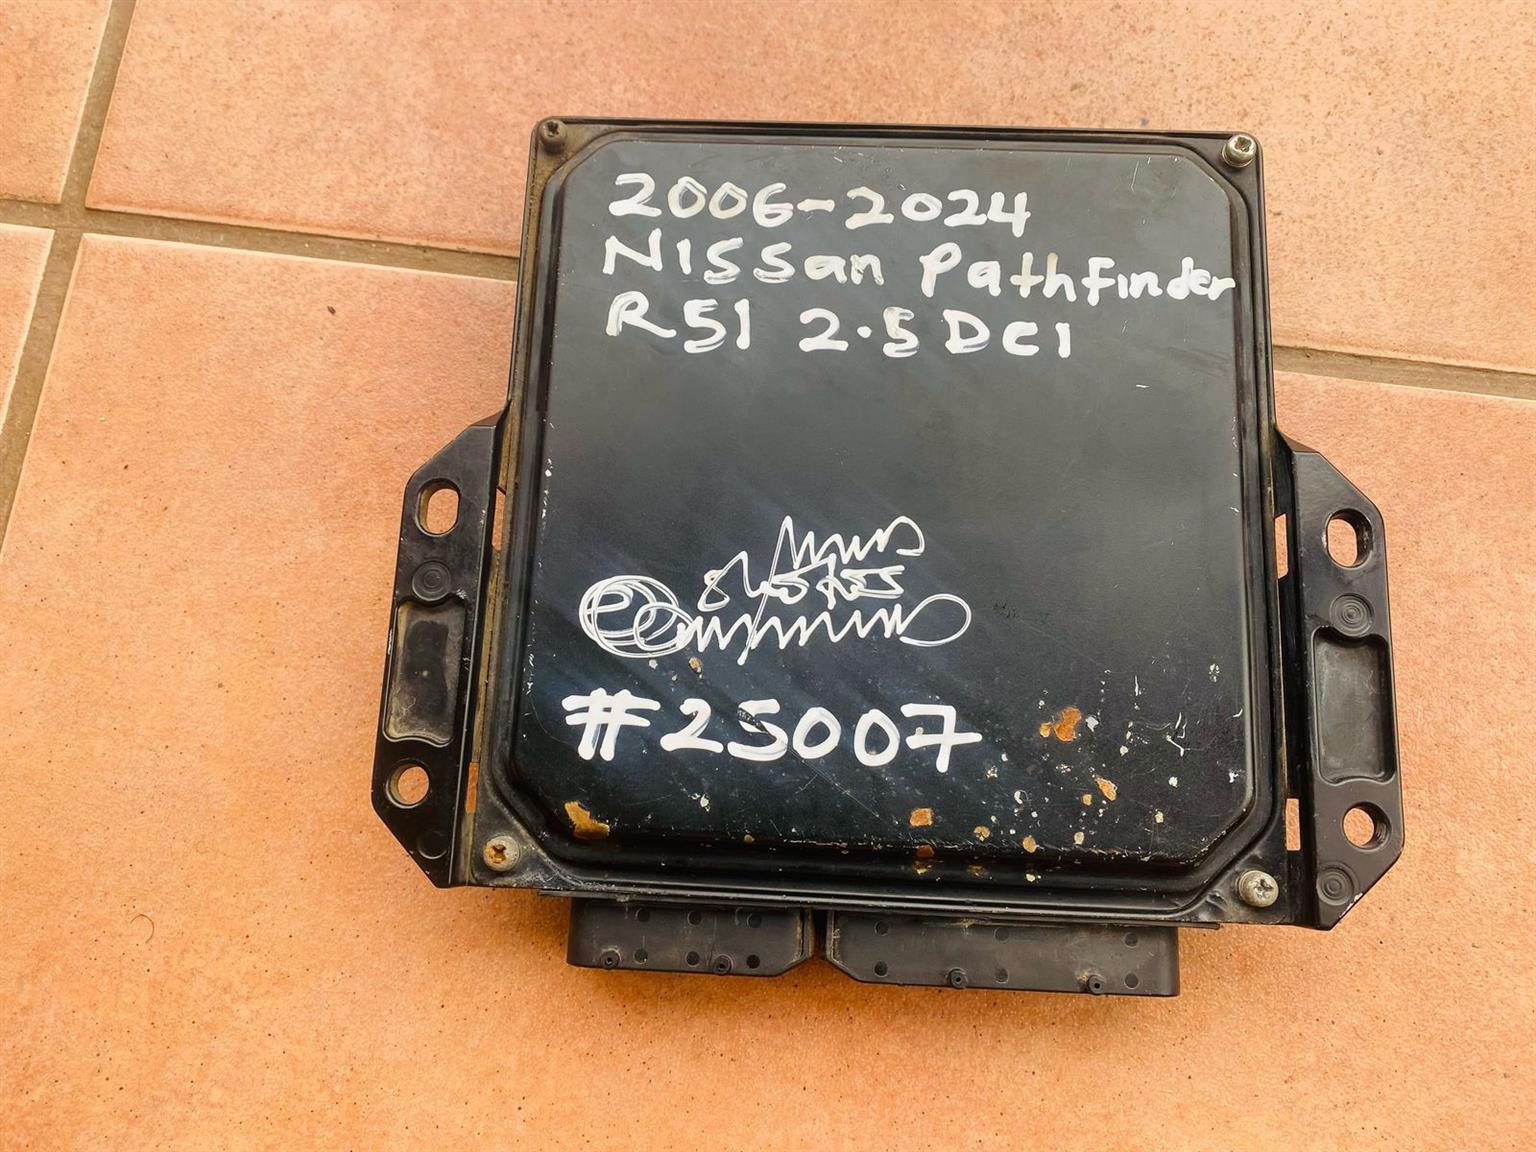 2006-2024
Nissan Pathfinder
R51 2.5DCI
#25007